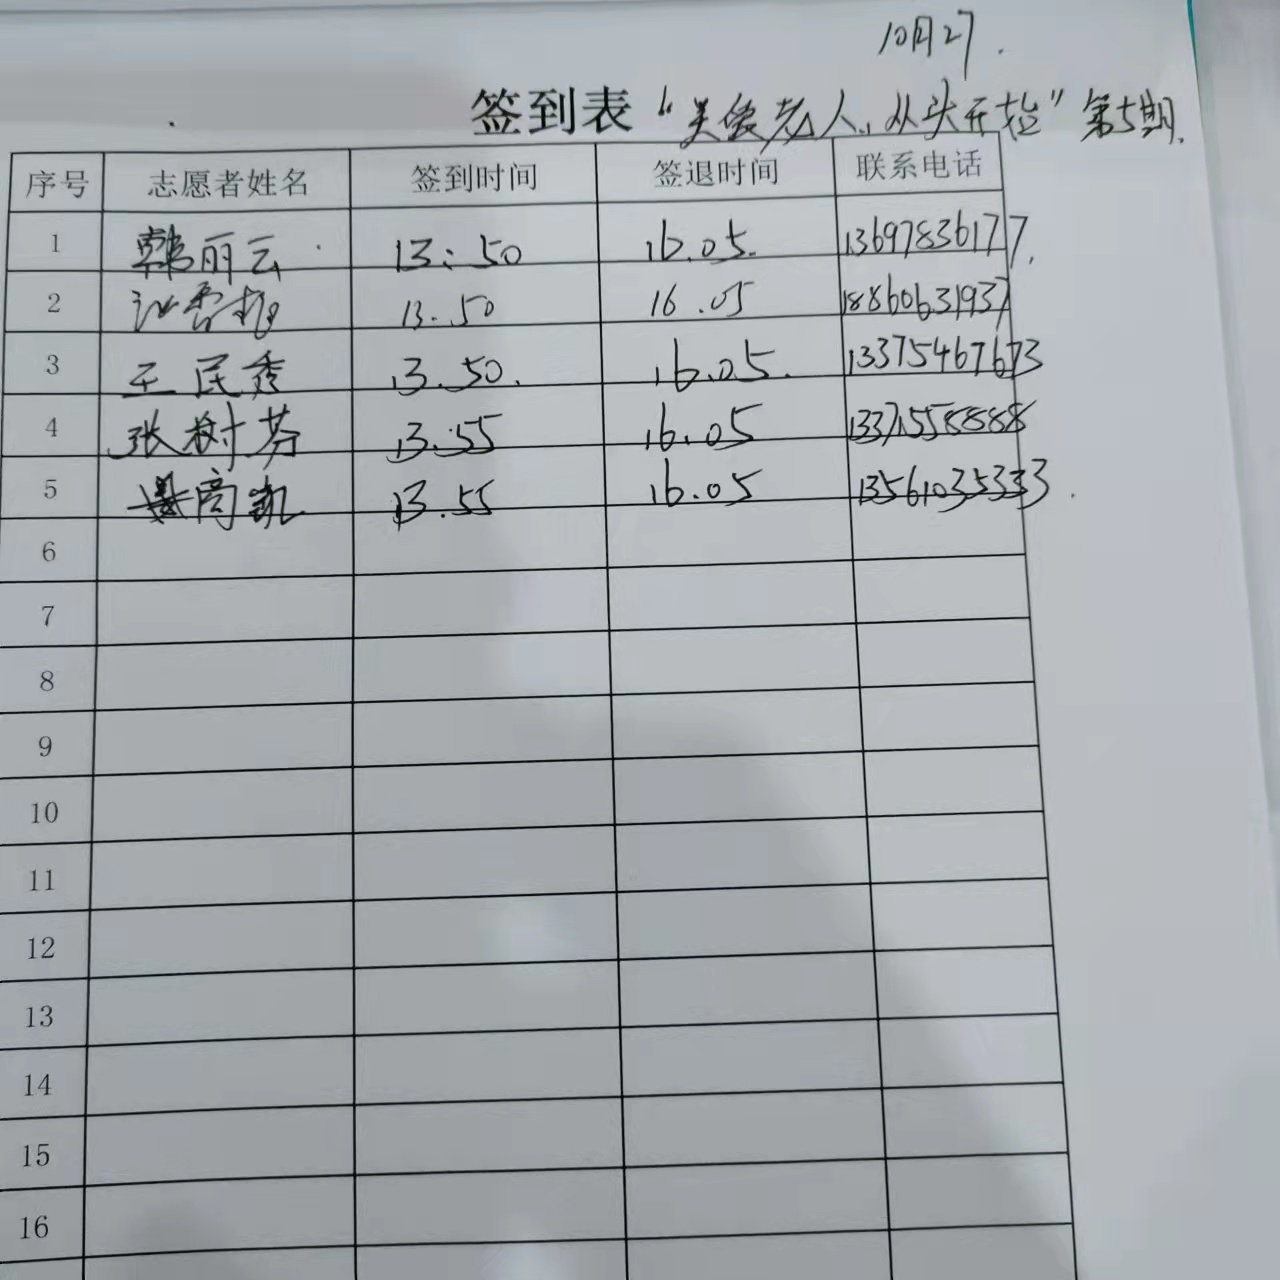 10月27.
签到表 "关爱老人,从头开始" 第5期.
序号 志愿者姓名 签到时间 签退时间 联系电话
1 韩丽云 13:50 16.05. 13697836177.
2 13.50 16.05 18860631937
3 王民秀 13.50. 16.05. 13375467673
4 张树芬 13.55 16.05 13371558888
5 商凯 13.55 16.05 13561035333.
6
7
8
9
10
11
12
13
14
15
16